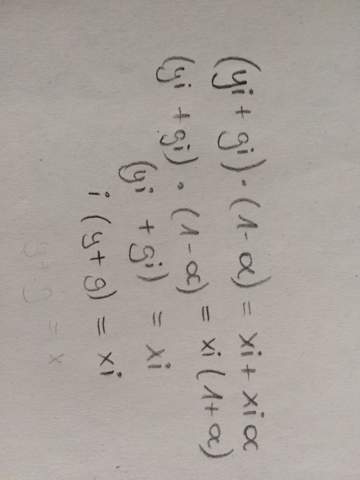 (yi + gi) · (1 - α) = xi + xi α
(yi + gi) · (1 - α) = xi (1 + α)
(yi + gi) = xi
i (y + g) = xi
y + g = x